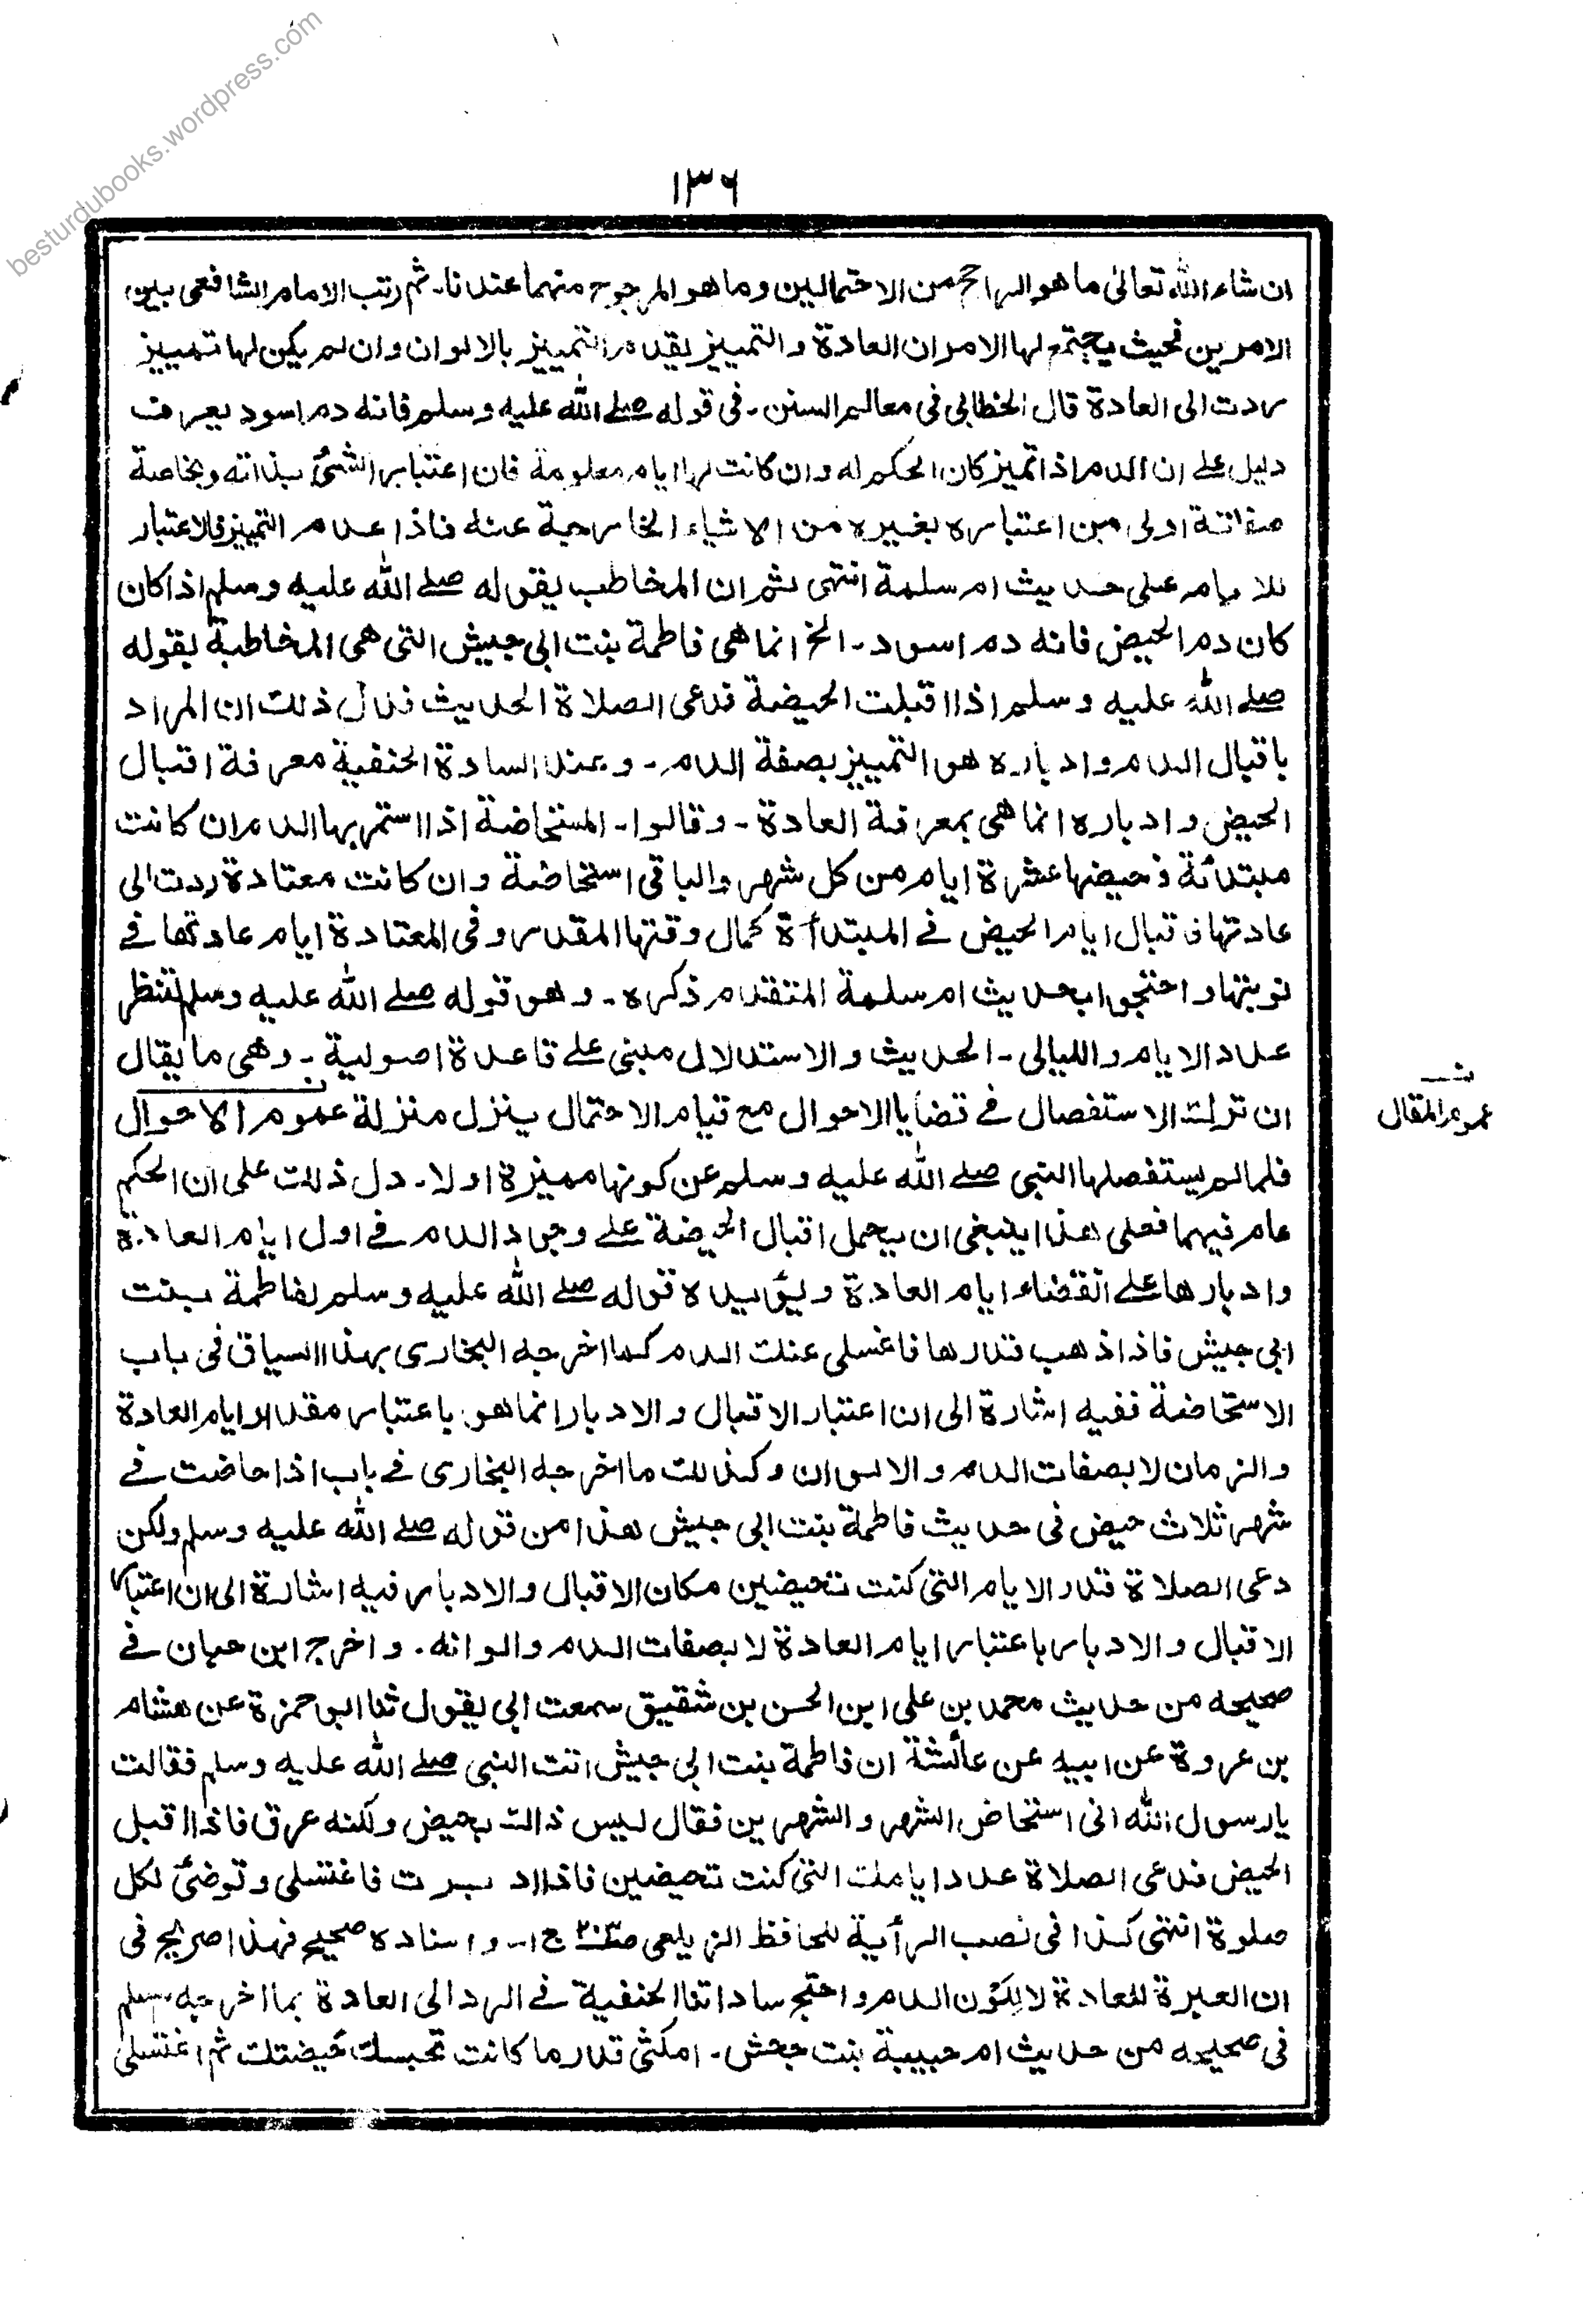 besturdubooks.wordpress.com
١٣٦
ان شاء الله تعالىٰ ما هو الراجح من الاحتمالين وما هو المرجوح منهما عندنا۔ ثم رتب الامام الشافعي بين
الامرين فحيث يجتمع لها الامران العادة والتمييز يقدم التمييز بالالوان وان لم يكن لها تمييز
ردت الى العادة قال الخطابي في معالم السنن۔ في قوله صلے الله عليه وسلم فانه دم اسود يعرف
دليل علے ان الدم اذا تميز كان الحكم له وان كانت لها ايام معلومة فان اعتبار الشئ بذاته وبخاصة
صفاتة اولى من اعتباره بغيره من الاشياء الخارجية عنه فاذا عدم التمييز فالاعتبار
للايام على حديث ام سلمة انتهى ثم ان المخاطب بقوله صلے الله عليه وسلم اذا كان
كان دم الحيض فانه دم اسود۔ الخ انما هي فاطمة بنت ابي حبيش التي هي المخاطبة بقوله
صلے الله عليه وسلم اذا اقبلت الحيضة فدعى الصلاة الحديث فدل ذلك ان المراد
باقبال الدم وادباره هو التمييز بصفة الدم۔ وعند السادة الحنفية معرفة اقبال
الحيض وادباره انما هي بمعرفة العادة۔ وقالوا۔ المستحاضة اذا استمر بها الدم ان كانت
مبتدأة فحيضها عشرة ايام من كل شهر والباقي استحاضة وان كانت معتادة ردت الى
عادتها فاقبال ايام الحيض في المبتدأة كمال وقتها المقدر وفي المعتادة ايام عادتها في
نوبتها واحتجوا بحديث ام سلمة المتقدم ذكره۔ وهو قوله صلے الله عليه وسلم لتنظر
عدد الايام والليالي۔ الحديث والاستدلال مبني علے قاعدة اصولية۔ وهي ما يقال
ان ترك الاستفصال في قضايا الاحوال مع قيام الاحتمال ينزل منزلة عموم الاحوال
ن
عموم المقال
فلما لم يستفصلها النبي صلے الله عليه وسلم عن كونها مميزة اولا۔ دل ذلك على ان الحكم
عام فيهما فعلى هذا ينبغي ان يحمل اقبال الحيضة علے وجود الدم في اول ايام العادة
وادبارها علے انقضاء ايام العادة ويؤيده قوله صلے الله عليه وسلم لفاطمة بنت
ابي حبيش فاذا ذهب قدرها فاغسلي عنك الدم كما اخرجه البخاري بهذا السياق في باب
الاستحاضة ففيه اشارة الى ان اعتبار الاقبال والادبار انما هو باعتبار مقدار ايام العادة
والزمان لا بصفات الدم والالوان وكذلك ما اخرجه البخاري في باب اذا حاضت في
شهر ثلاث حيض في حديث فاطمة بنت ابي حبيش هذا من قوله صلے الله عليه وسلم ولكن
دعى الصلاة قدر الايام التي كنت تحيضين مكان الاقبال والادبار فيه اشارة الى ان اعتبار
الاقبال والادبار باعتبار ايام العادة لا بصفات الدم والوانه۔ واخرج ابن حبان في
صحيحه من حديث محمد بن علي ابن الحسن بن شقيق سمعت ابي يقول ثنا ابو حمزة عن هشام
بن عروة عن ابيه عن عائشة ان فاطمة بنت ابي حبيش اتت النبي صلے الله عليه وسلم فقالت
يا رسول الله اني استحاض الشهر والشهرين فقال ليس ذالك بحيض ولكنه عرق فاذا اقبل
الحيض فدعى الصلاة عدد ايامك التي كنت تحيضين فاذا ادبرت فاغتسلي وتوضئ لكل
صلوة انتهى كذا في نصب الرأية للحافظ الزيلعي ص٢٠٣ ج١۔ واسناده صحيح فهذا صريح في
ان العبرة للعادة لا للون الدم واحتج ساداتنا الحنفية في الرد الى العادة بما اخرجه مسلم
في صحيحه من حديث ام حبيبة بنت جحش۔ امكثي قدر ما كانت تحبسك حيضتك ثم اغتسلي